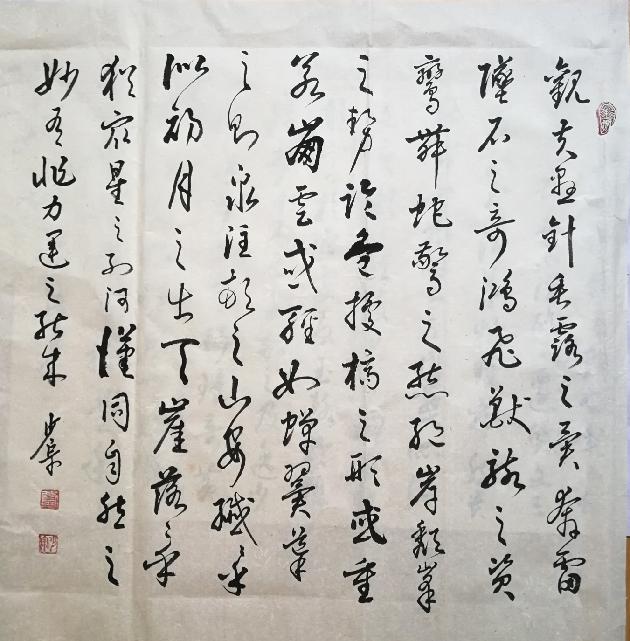 觀夫懸針垂露之異奔雷
墜石之奇鴻飛獸駭之資
鸞舞蛇驚之態絕岸頹峯
之勢臨危據槁之形或重
若崩雲或輕如蟬翼導
之則泉注頓之山安纖乎
似初月之出天崖落々乎
猶眾星之列河漢同自然之
妙有非力運之能成